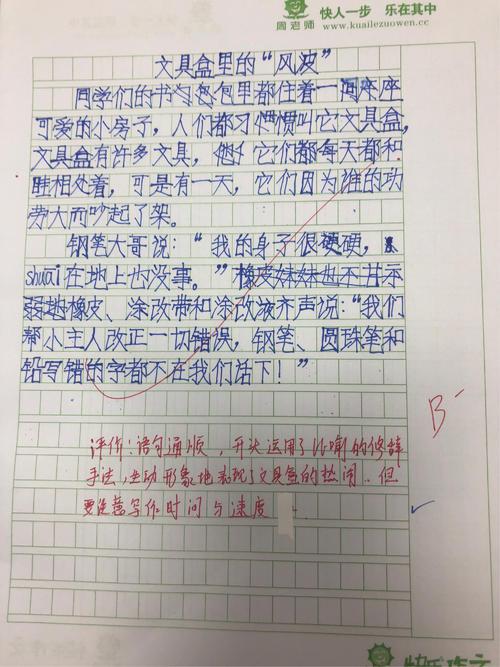 周老师
快人一步 乐在其中
www.kuailezuowen.cc
文具盒里的“风波”
同学们的书包里都住着一座座
可爱的小房子，人们都习惯叫它文具盒，
文具盒有许多文具，它们都每天都和
睦相处着，可是有一天，它们因为谁的功
劳大而吵起了架。
钢笔大哥说：“我的身子很硬，
shuai在地上也没事。”橡皮妹妹也不甘示
弱地橡皮、涂改带和涂改液齐声说：“我们
帮小主人改正一切错误，钢笔、圆珠笔和
铅写错的字都不在我们话下！”
B-
评价：语句通顺，开头运用了比喻的修辞
手法，生动形象地表现了文具盒的热闹.但
要注意写作时间与速度